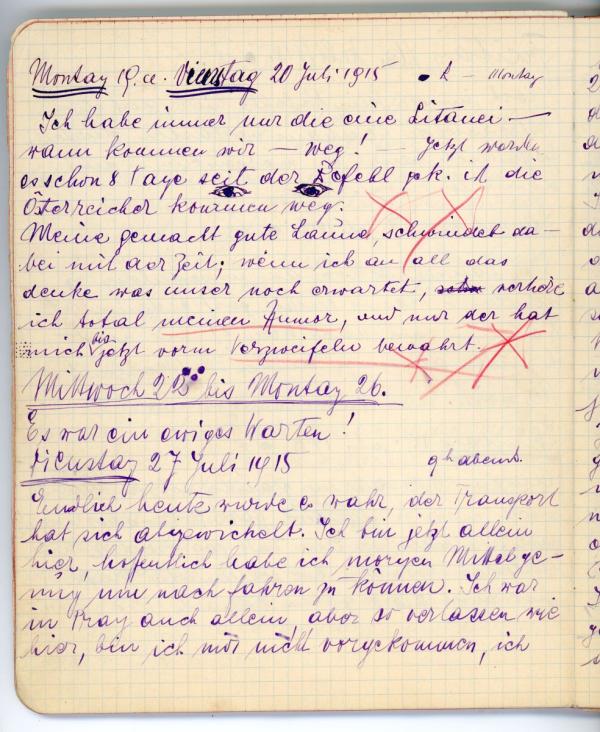 Montag 19. u. Dienstag 20 Juli 1915 h – Montag
Ich habe immer nur die eine Litanei –
wann kommen wir – weg! – Jetzt werden
es schon 8 Tage seit der Befehl gek. ist die
Österreicher kommen weg.
Meine gemacht gute Laune, schwindet da-
bei mit der Zeit; wenn ich an all das
denke was unser noch erwartet, verliere
ich total meinen Humor, und nur der hat
mich bis jetzt vorm Verzweifeln bewahrt.
Mittwoch 22 bis Montag 26.
Es war ein ewiges Warten!
Dienstag 27 Juli 1915 9h abends.
Endlich heute wurde es wahr, der Transport
hat sich abgewickelt. Ich bin jetzt allein
hier, hoffentlich habe ich morgen Mittel ge-
nug um nach fahren zu können. Ich war
in Prag auch allein, aber so verlassen wie
hier, bin ich mir nicht vorgekommen, ich